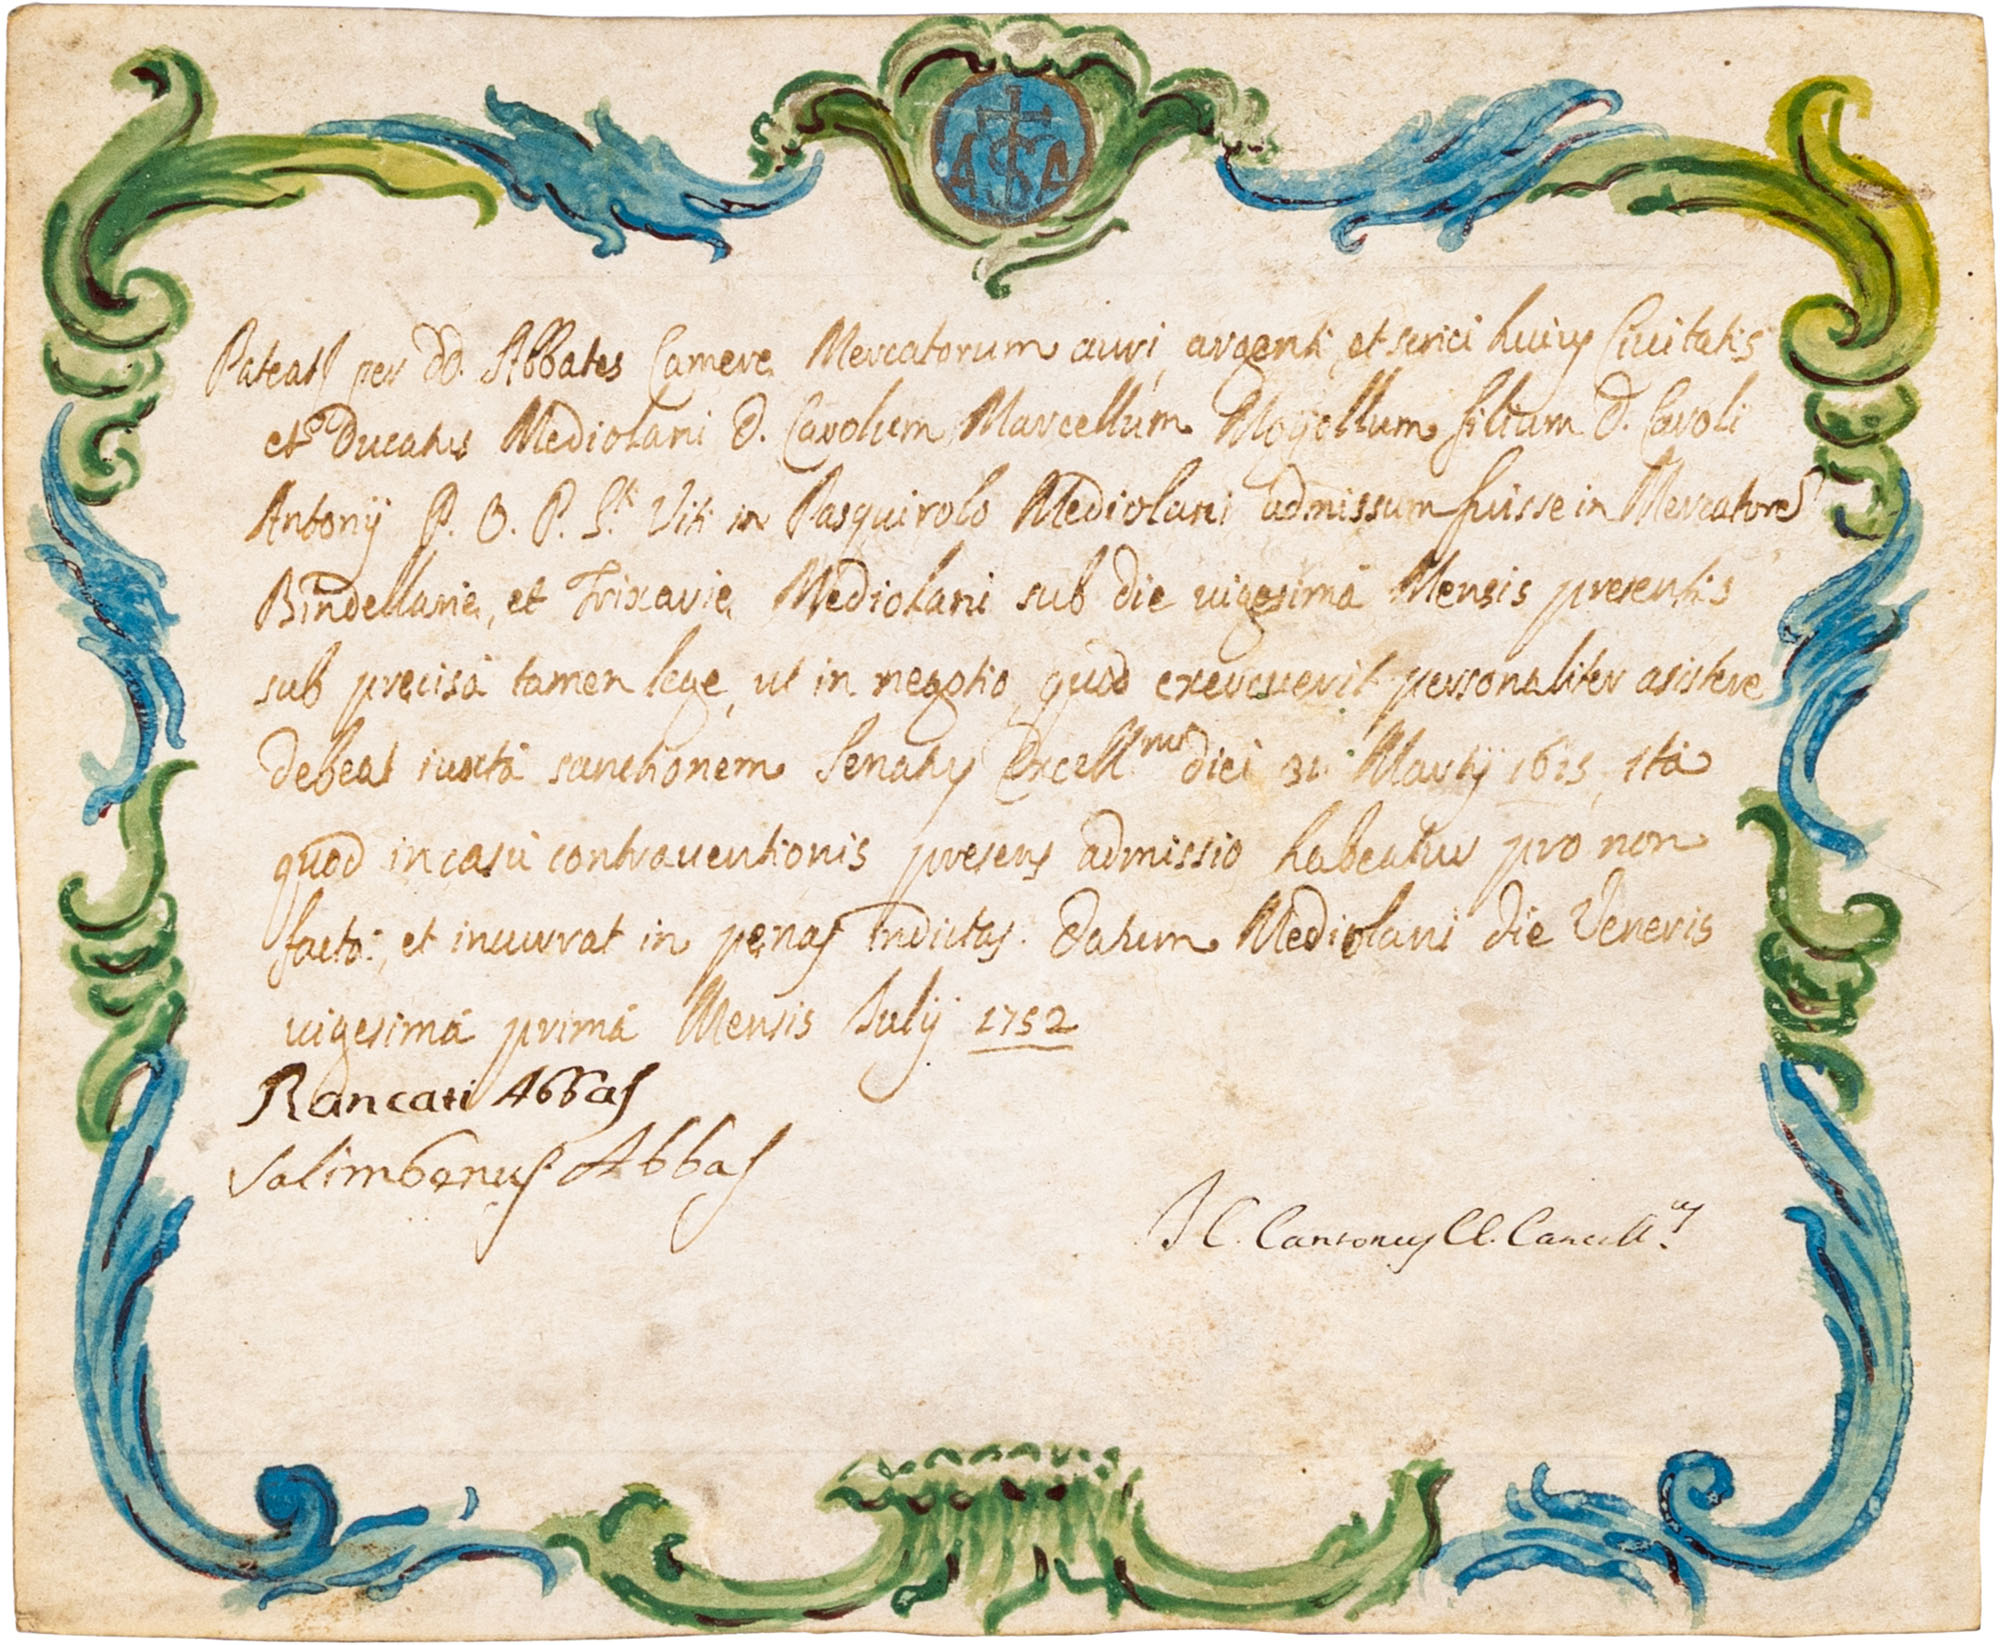 A S A
Pateat per DD. Abbates Camere Mercatorum auri, argenti, et serici huius Ciuitatis
et Ducatus Mediolani D. Carolum Marcellum Mogollum filium D. Caroli
Antonij P. O. P. S.ti Viti in Pasquirolo Mediolani admissum fuisse in Mercatorē
Bindellarie, et Frixarie Mediolani sub die uigesimà Mensis presentis
sub precisà tamen lege, ut in negotio, quod exercuerit personaliter asistere
debeat iuxtà sanctionem Senatus Excell.mi diei 31 Martij 1615, ità
quod in casù contrauentionis presens admissio habeatur pro non
factà, et incurrat in penas indictas. Datum Mediolani die Veneris
uigesimà primà Mensis Julij 1752
Rancati Abbas
Salimbenus Abbas
J C. Cantonus Cancell.us